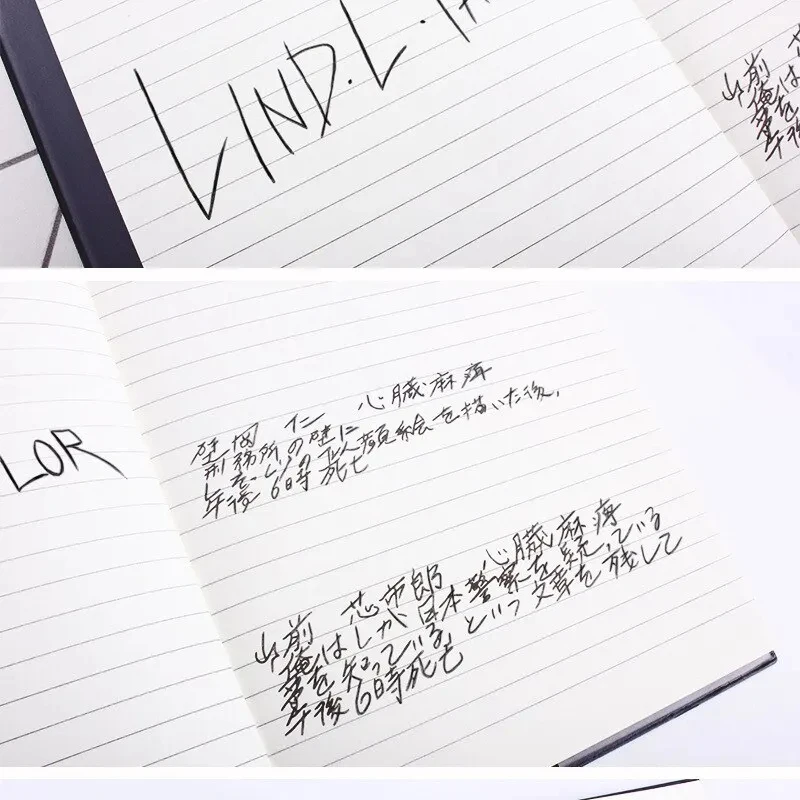 LIND.L.TA
山前 芯
俺は
事を
午後
LOR
仁 心臓麻痺
刑務所の壁に
顔絵を描いた後,
午後6時死亡
山前 芯市郎 心臓麻痺
俺はしか日本警察を疑っている
事を知っている, という文章を残して
午後6時死亡